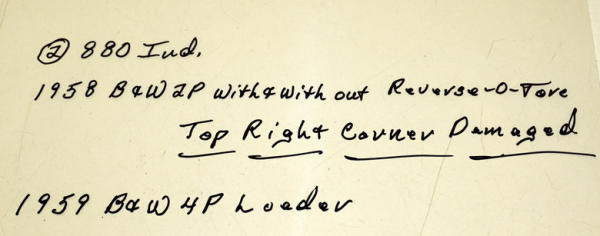 ② 880 Ind.
1958 B&W 2P with & with out Reverse-O-Torc
Top Right Corner Damaged
1959 B&W 4P Loader